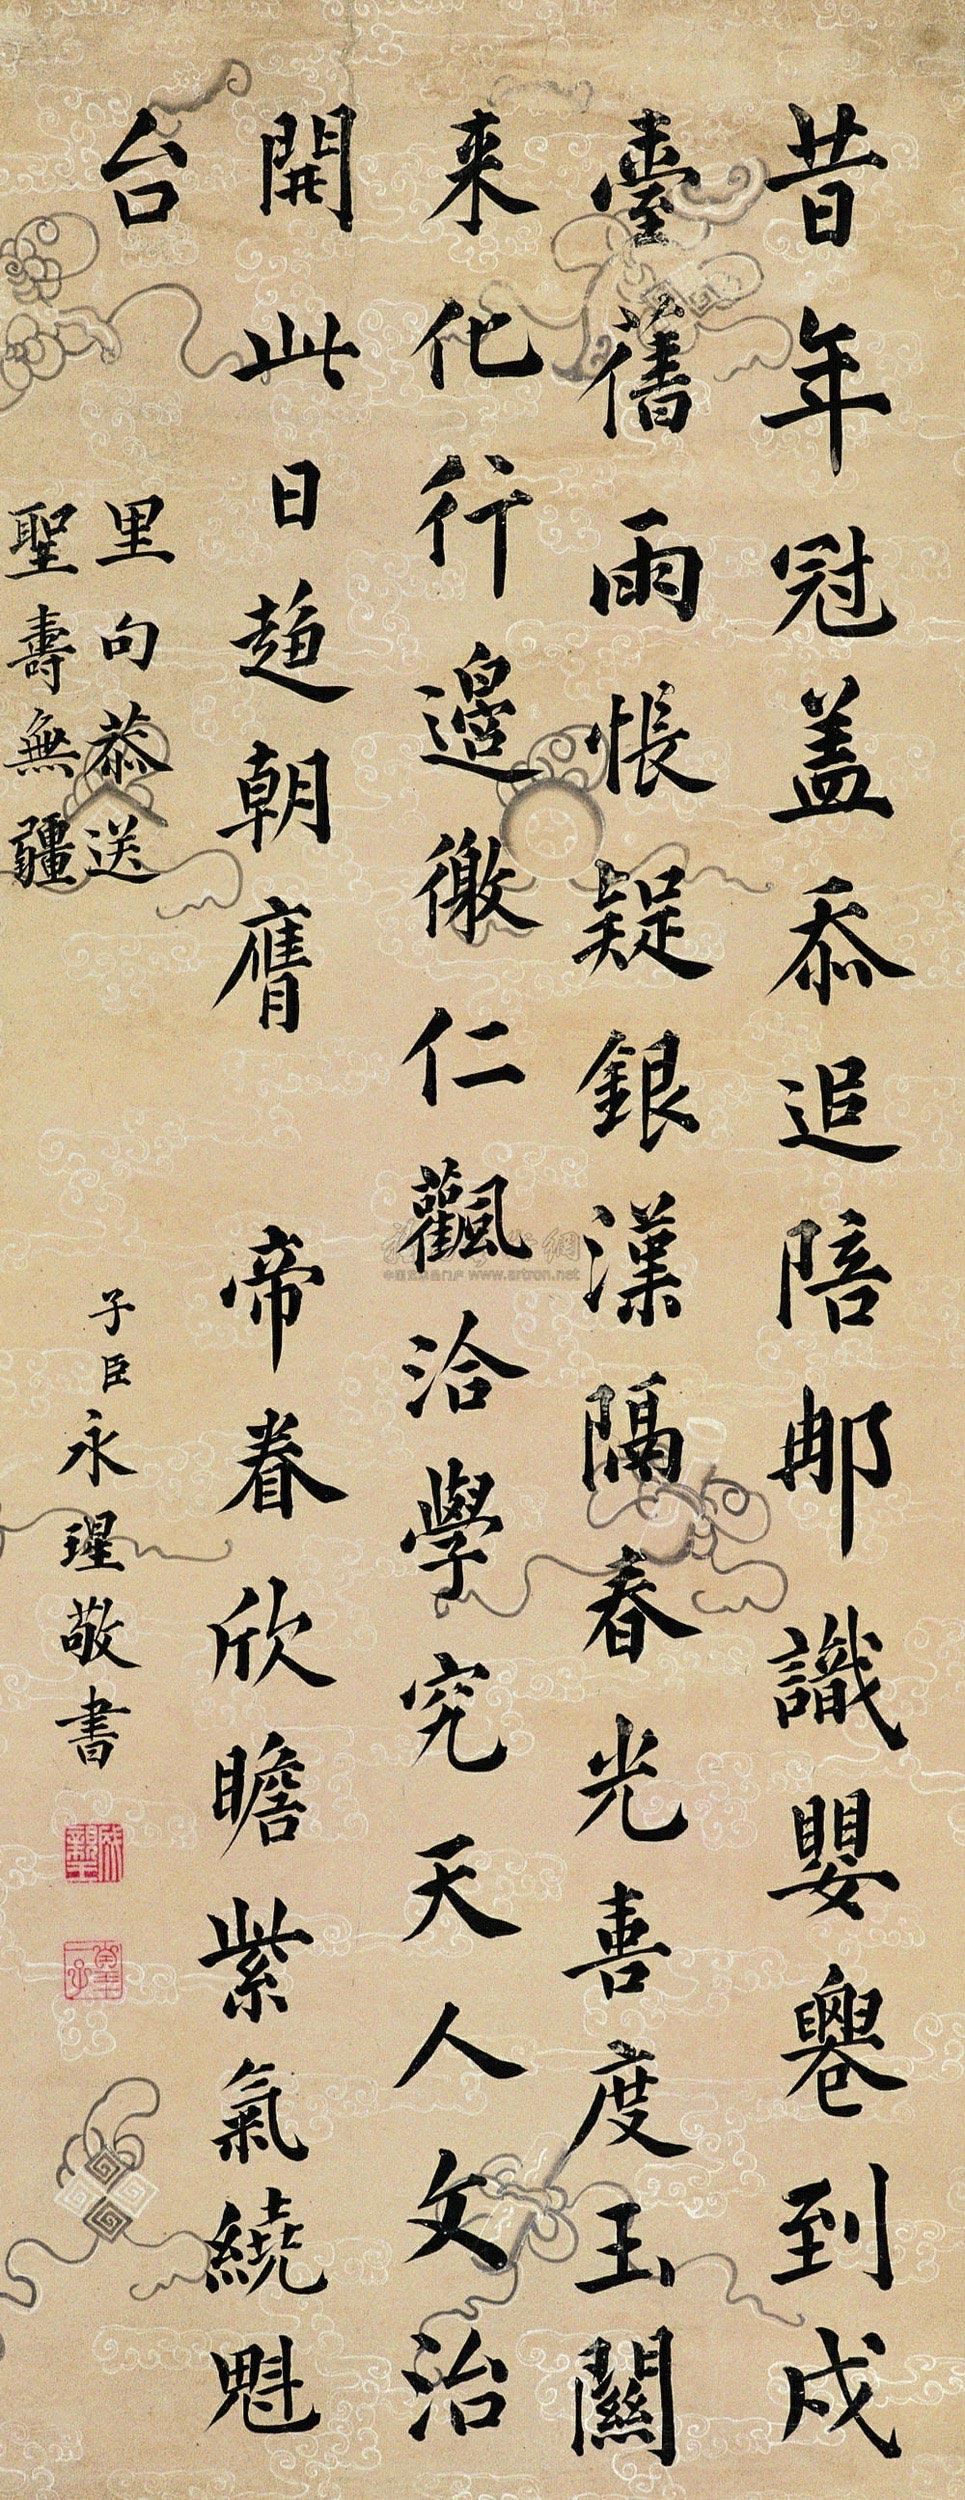 昔年冠盖忝追陪郍識嬰舋到戍
臺舊雨悵疑銀漢隔春光喜度玉關
来化行邊徼仁飌洽學究天人文治
開此日趋朝膺 帝眷欣瞻紫氣繞魁
台
里句恭送
聖壽無疆
子臣永瑆敬書
成親王
www.artron.net